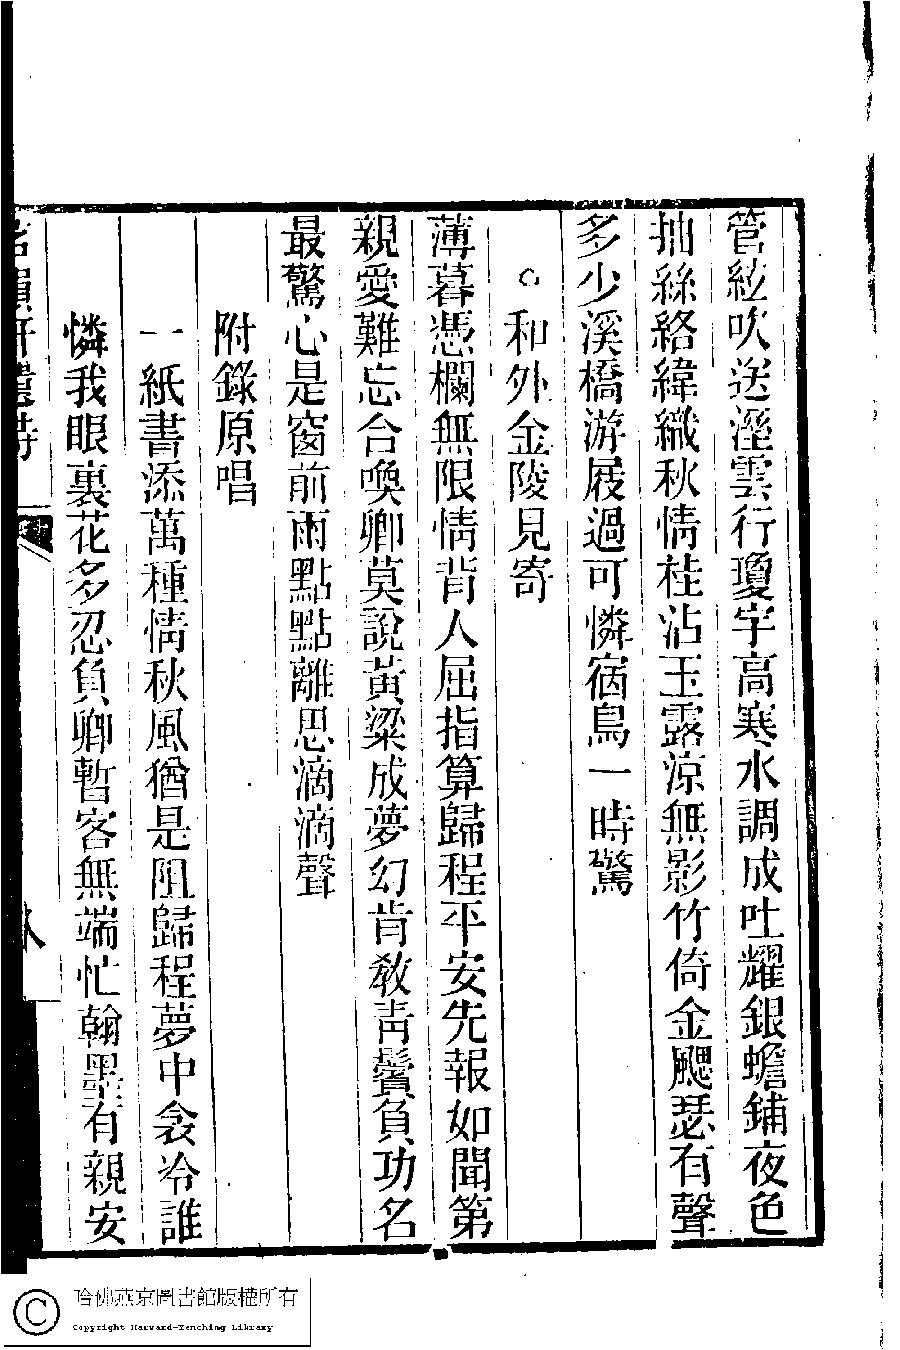 管絃吹送溼雲行瓊宇高寒水調成吐耀銀蟾鋪夜色
抽絲絡緯織秋情桂沾玉露涼無影竹倚金颸瑟有聲
多少溪橋游屐過可憐宿鳥一時驚
○和外金陵見寄
薄暮憑欄無限情背人屈指算歸程平安先報如聞第
親愛難忘合喚卿莫說黃粱成夢幻肯教靑鬢負功名
最驚心是窗前雨點點離思滴滴聲
附錄原唱
一紙書添萬種情秋風猶是阻歸程夢中衾冷誰
憐我眼裏花多忍負卿暫客無端忙翰墨有親安
哈佛燕京圖書館版權所有
Copyright Harvard-Yenching Library